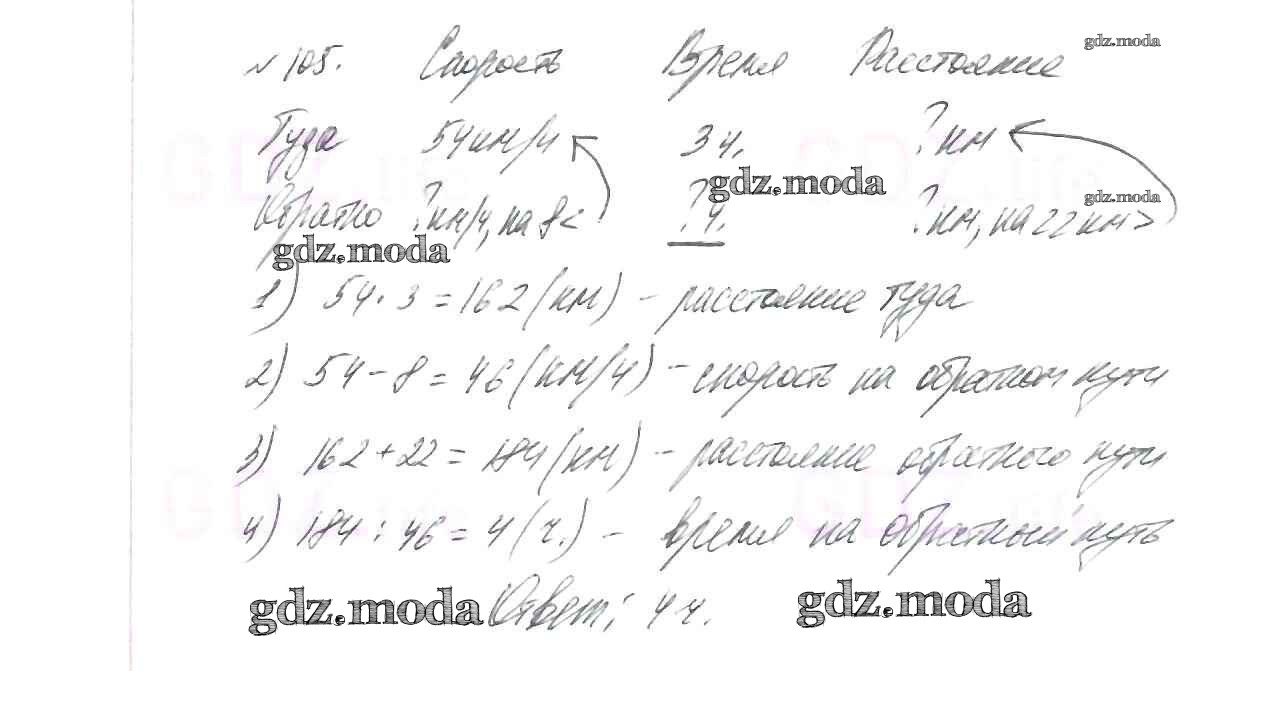 № 105. Скорость Время Расстояние
gdz.moda
Туда 54 км/ч 3 ч. ? км
gdz.moda
gdz.moda
Обратно ? км/ч, на 8 < ? ч. ? км, на 22 км >
gdz.moda
1) 54 · 3 = 162 (км) – расстояние туда
2) 54 – 8 = 46 (км/ч) – скорость на обратном пути
3) 162 + 22 = 184 (км) – расстояние обратного пути
4) 184 : 46 = 4 (ч.) – время на обратный путь
gdz.moda Ответ: 4 ч. gdz.moda